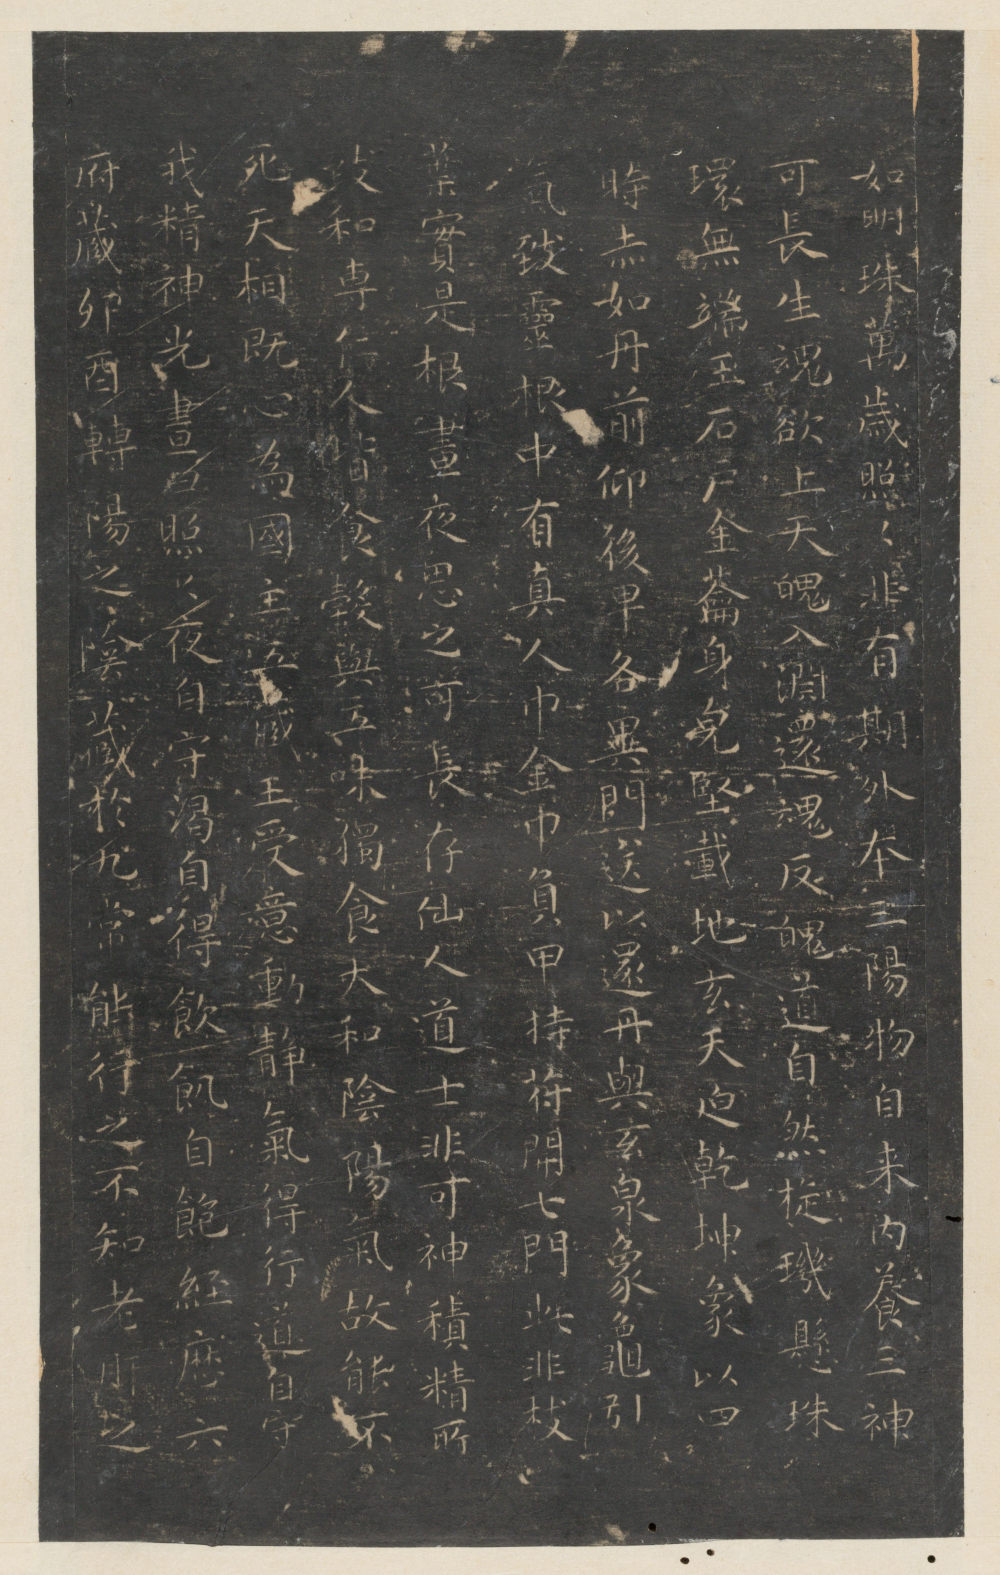 如明珠萬歲照〻非有期外本三陽物自来内養三神
可長生魂欲上天魄入淵還魂反魄道自然旋璣懸珠
環無端玉石戶金籥身皃堅載地玄天迫乾坤象以四
時赤如丹前仰後卑各異門送以還丹與玄泉象龜引
氣致靈根中有真人巾金巾負甲持符開七門此非枝
葉實是根晝夜思之可長存仙人道士非可神積精所
致和專仁人皆食穀與五味獨食大和陰陽氣故能不
死天相既心為國主五藏王受意動静氣得行道自守
我精神光晝日照〻夜自守渴自得飲飢自飽經歷六
府藏卯酉轉陽之陰藏於九常能行之不知老肝之